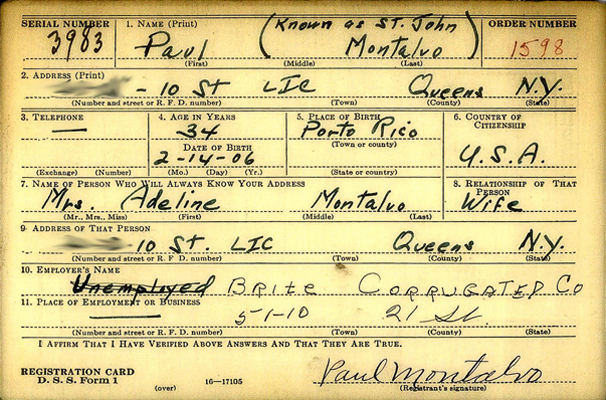 SERIAL NUMBER 1. NAME (Print) (Known as St. John ORDER NUMBER
3983 Paul Montalvo) 1598
(First) (Middle) (Last)
2. ADDRESS (Print)
- 10 St LIC Queens N.Y.
(Number and street or R. F. D. number) (Town) (County) (State)
3. TELEPHONE 4. AGE IN YEARS 5. PLACE OF BIRTH 6. COUNTRY OF CITIZENSHIP
— 34 Porto Rico
DATE OF BIRTH (Town or county)
2-14-06 U.S.A.
(Exchange) (Number) (Mo.) (Day) (Yr.) (State or country)
7. NAME OF PERSON WHO WILL ALWAYS KNOW YOUR ADDRESS 8. RELATIONSHIP OF THAT PERSON
Mrs. Adeline Montalvo Wife
(Mr., Mrs., Miss) (First) (Middle) (Last)
9. ADDRESS OF THAT PERSON
10 St. LIC Queens N.Y.
(Number and street or R. F. D. number) (Town) (County) (State)
10. EMPLOYER'S NAME
Unemployed BRITE CORRUGATED CO
11. PLACE OF EMPLOYMENT OR BUSINESS
— 51-10 21 St.
(Number and street or R. F. D. number) (Town) (County) (State)
I AFFIRM THAT I HAVE VERIFIED ABOVE ANSWERS AND THAT THEY ARE TRUE.
REGISTRATION CARD
D. S. S. Form 1 (over) 16—17105 Paul Montalvo
(Registrant's signature)